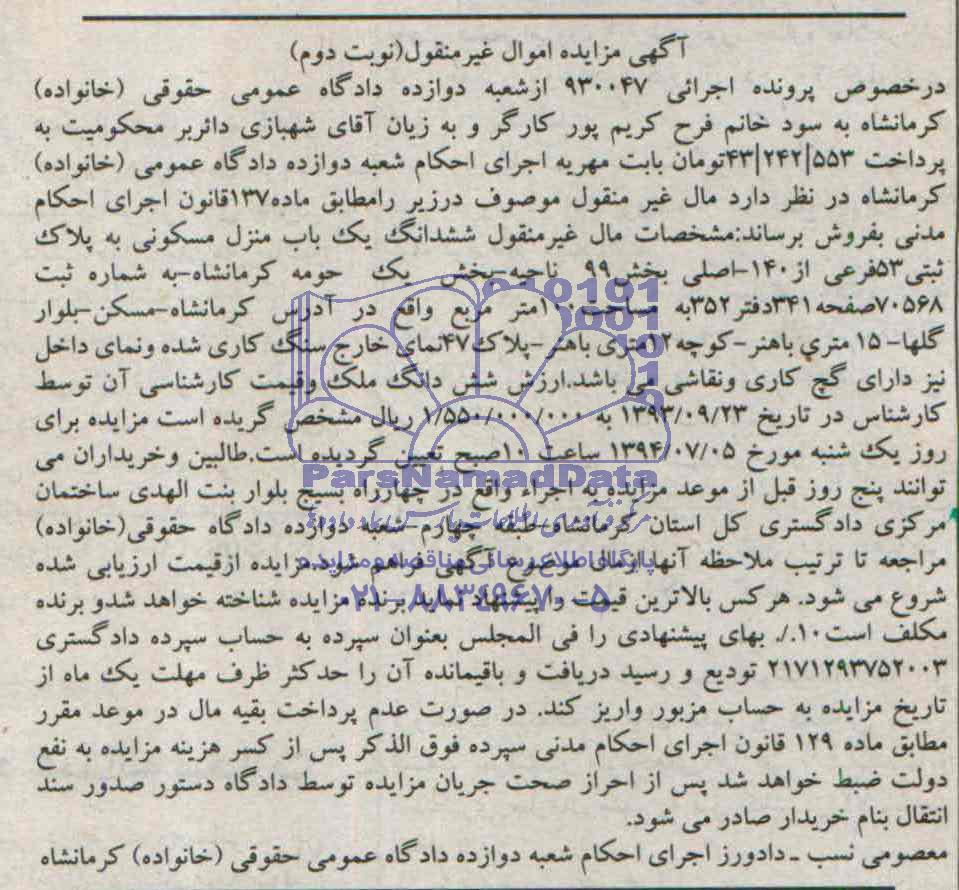 آگهی مزایده اموال غیرمنقول(نوبت دوم)
درخصوص پرونده اجرائی ۹۳۰۰۴۷ ازشعبه دوازده دادگاه عمومی حقوقی (خانواده)
کرمانشاه به سود خانم فرح کریم پور کارگر و به زیان آقای شهبازی دائربر محکومیت به
پرداخت ۴۳|۲۴۲|۵۵۳تومان بابت مهریه اجرای احکام شعبه دوازده دادگاه عمومی (خانواده)
کرمانشاه در نظر دارد مال غیر منقول موصوف درزیر رامطابق ماده۱۳۷قانون اجرای احکام
مدنی بفروش برساند:مشخصات مال غیرمنقول ششدانگ یک باب منزل مسکونی به پلاک
ثبتی۵۳فرعی از۱۴۰-اصلی بخش۹۹ ناحیه-بخش یک حومه کرمانشاه-به شماره ثبت
۷۰۵۶۸صفحه۳۴۱دفتر۳۵۲به مساحت متر مربع واقع در آدرس کرمانشاه-مسکن-بلوار
گلها- ۱۵ متری باهنر-کوچه۱۲متری باهنر-پلاک۴۷نمای خارج سنگ کاری شده ونمای داخل
نیز دارای گچ کاری ونقاشی می باشد.ارزش شش دانگ ملک وقیمت کارشناسی آن توسط
کارشناس در تاریخ ۱۳۹۳/۰۹/۲۳ به ۱/۵۵۰/۰۰۰/۰۰۰ ریال مشخص گریده است مزایده برای
روز یک شنبه مورخ ۱۳۹۴/۰۷/۰۵ ساعت ۱۰صبح تعیین گردیده است.طالبین وخریداران می
ParsNamadData
توانند پنج روز قبل از موعد مزایده به اجراء واقع در چهارراه بسیج بلوار بنت الهدی ساختمان
مرکزی دادگستری کل استان کرمانشاه-طبقه چهارم-شعبه دوازده دادگاه حقوقی(خانواده)
مراجعه تا ترتیب ملاحظه آنها ازمال موضوع آگهی فراهم شود.مزایده ازقیمت ارزیابی شده
پایگاه اطلاع رسانی مناقصه و مزایده
شروع می شود. هرکس بالاترین قیمت را پیشنهاد نماید برنده مزایده شناخته خواهد شدو برنده
۰۲۱-۸۸۳۴۹۶۷۰-۵
مکلف است۱۰٪. بهای پیشنهادی را فی المجلس بعنوان سپرده به حساب سپرده دادگستری
۲۱۷۱۲۹۳۷۵۲۰۰۳ تودیع و رسید دریافت و باقیمانده آن را حدکثر ظرف مهلت یک ماه از
تاریخ مزایده به حساب مزبور واریز کند. در صورت عدم پرداخت بقیه مال در موعد مقرر
مطابق ماده ۱۲۹ قانون اجرای احکام مدنی سپرده فوق الذکر پس از کسر هزینه مزایده به نفع
دولت ضبط خواهد شد پس از احراز صحت جریان مزایده توسط دادگاه دستور صدور سند
انتقال بنام خریدار صادر می شود.
معصومی نسب ـ دادورز اجرای احکام شعبه دوازده دادگاه عمومی حقوقی (خانواده) کرمانشاه